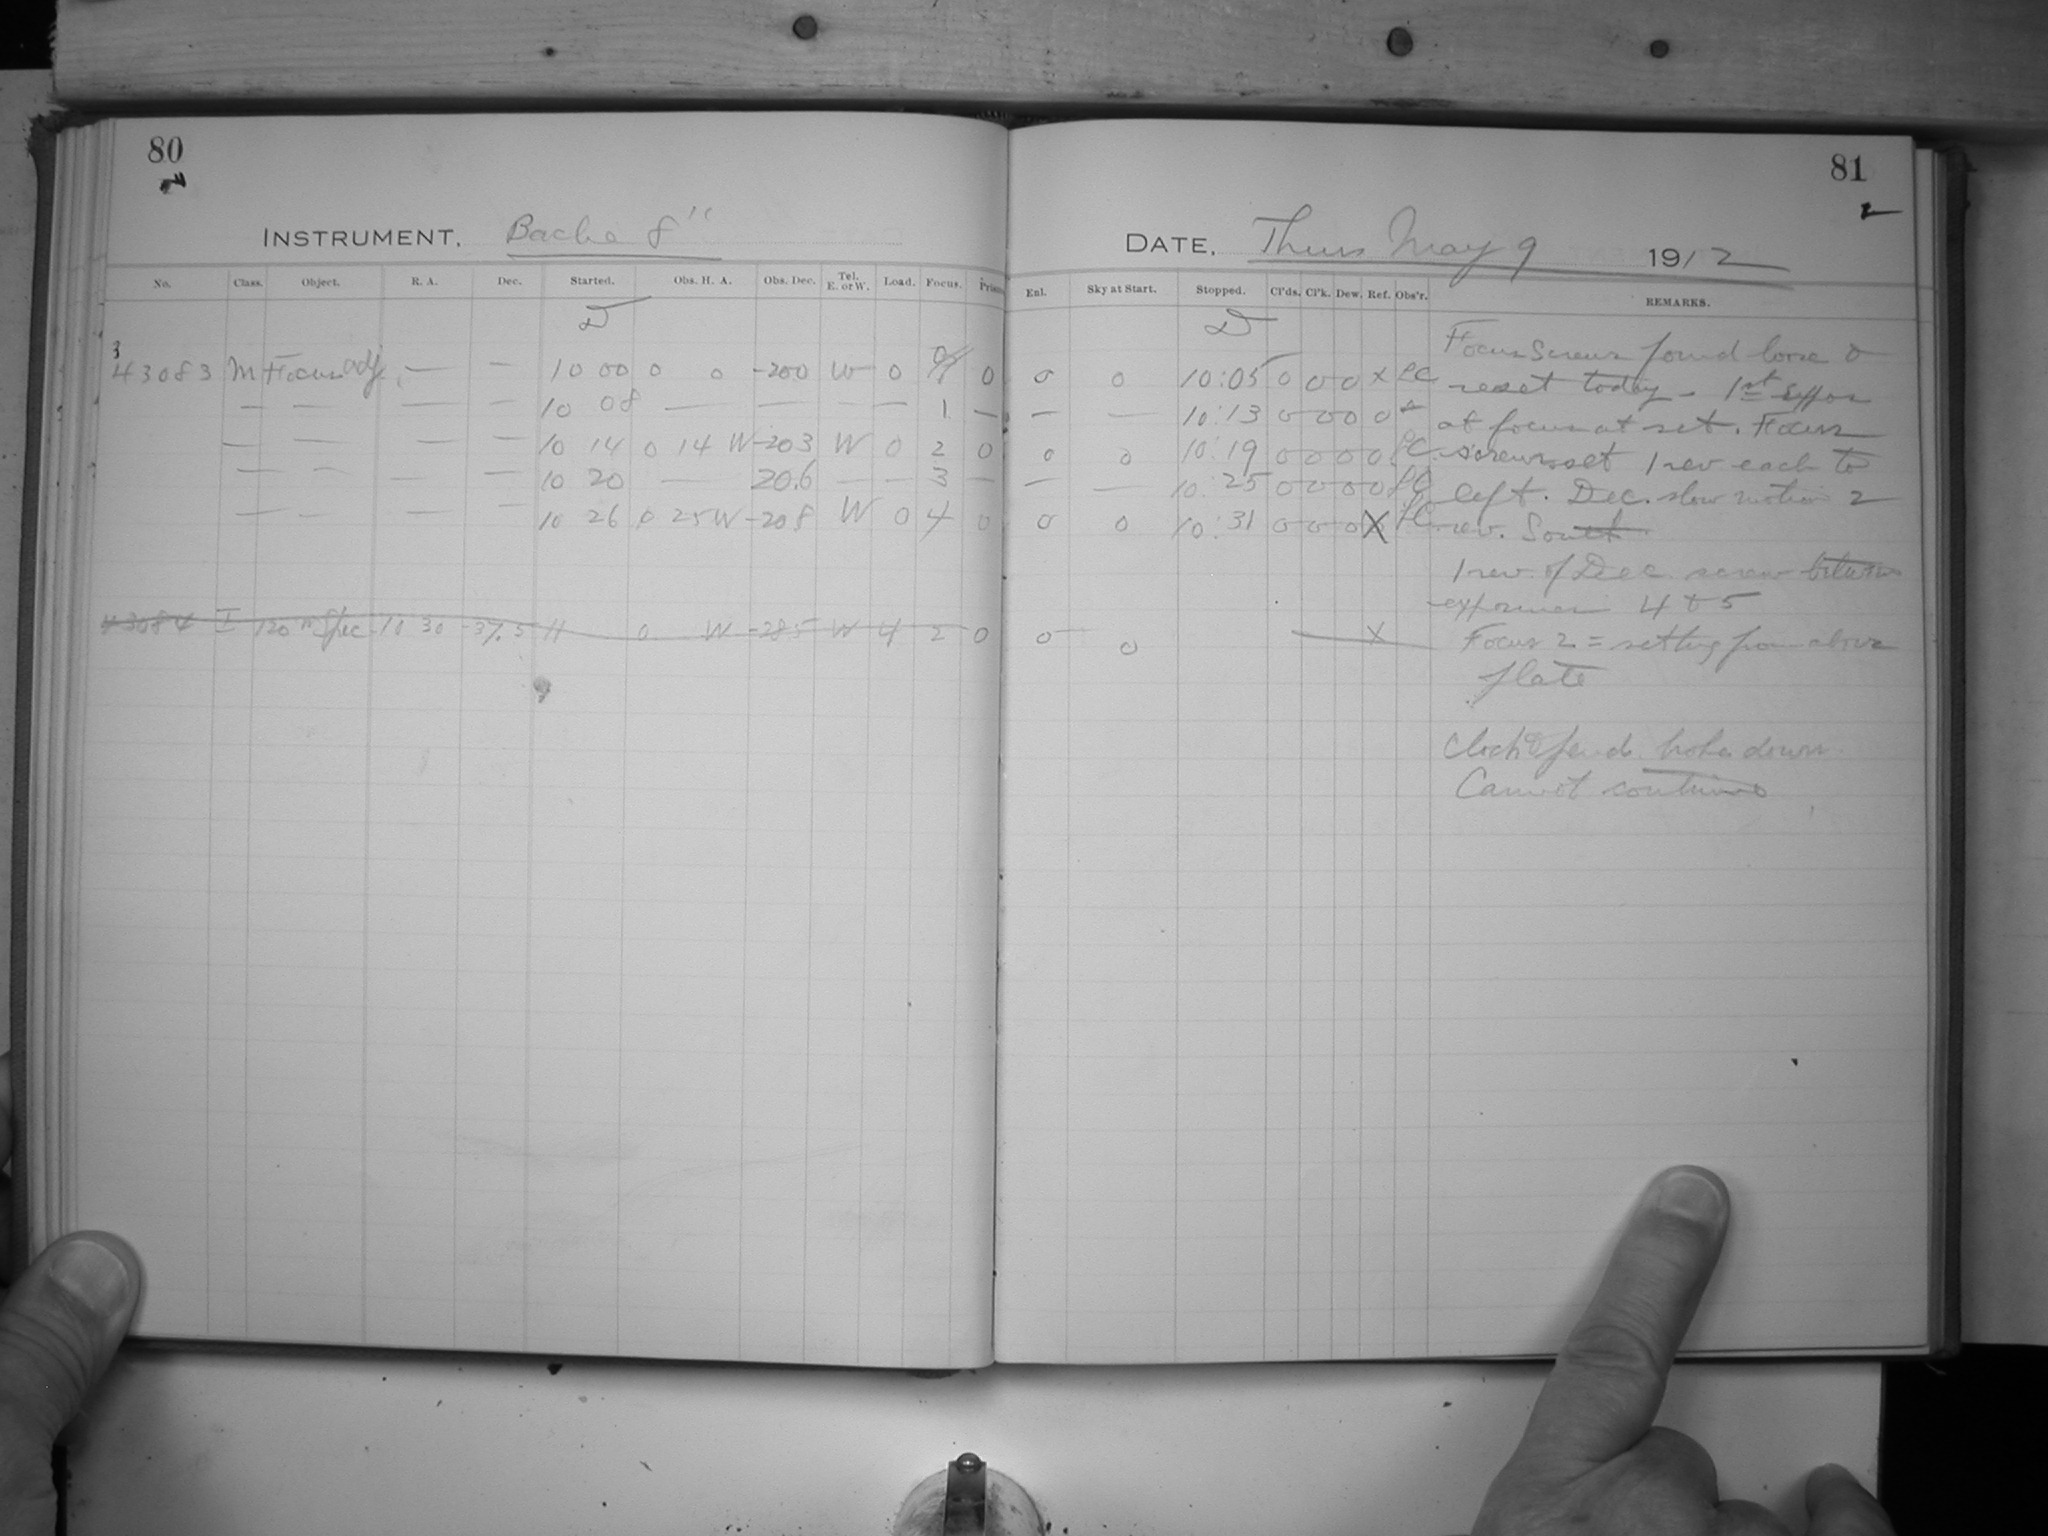 80
INSTRUMENT. Bache 8"
No. Class. Object. R. A. Dec. Started. Obs. H. A. Obs. Dec. Tel. E. or W. Load. Focus.
3
43083 M Focus adj. — — 10 00 0 0 -200 W 0 0
— — — — 10 08 — — — — 1 —
— — — — 10 14 0 14 W -203 W 0 2 0
— — — 10 20 — 20.6 — — 3 —
— — — — 10 26 0 25 W -208 W 0 4 0
43084 I 120m Spec 10 30 -37.5 11 0 W -28.5 W 4 2 0
81
2
DATE. Thurs May 9 1912
Enl. Sky at Start. Stopped. Cl'ds. Cl'k. Dew. Ref. Obs'r. REMARKS.
0 0 10:05 0 0 0 X
— — 10:13 0 0 0 0
0 0 10:19 0 0 0 0
— — 10:25 0 0 0 0
0 0 10:31 0 0 0 X
0 0 X
Focus Screws found loose &
reset today - 1st expos
at focus at set. Focus
screws set 1 rev each to
left. Dec. slow motion 2
rev. South
1 rev. of Dec. screw between
exposures 4 & 5
Focus 2 = setting from above
plate
Clock pend. broke down
Cannot continue